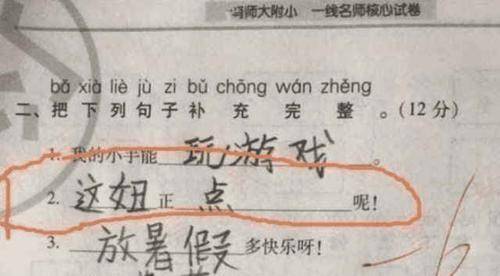 师大附小 一线名师核心试卷
bǎ xià liè jù zi bǔ chōng wán zhěng
二、把下列句子补充完整。(12分)
1. 我的小手能 玩游戏 。
2. 这妞正 点 呢!
3. 放暑假 多快乐呀!